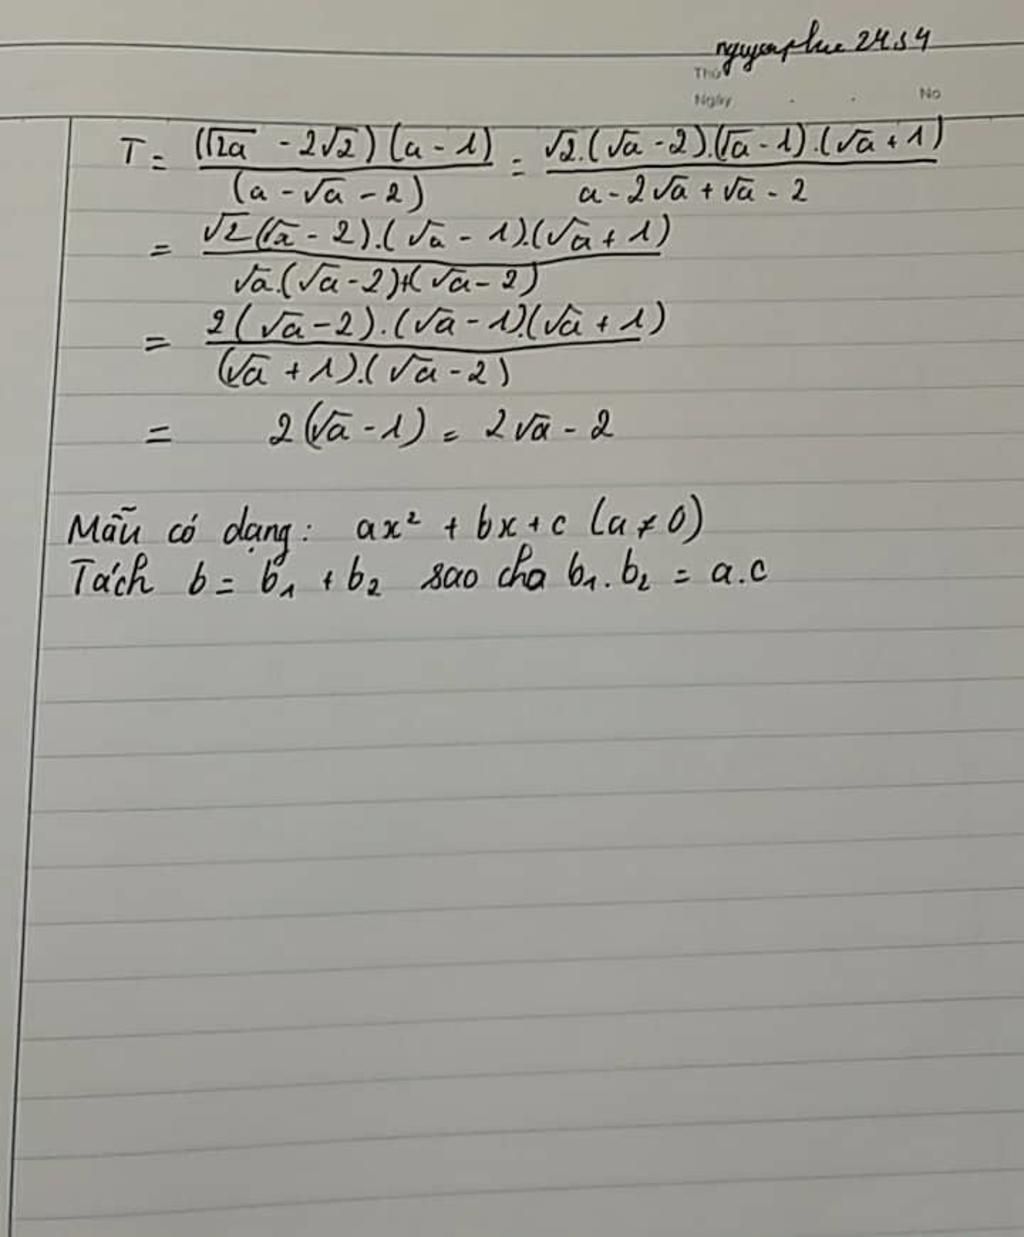 nguyenphuc 24s4
Thứ
Ngày . . No
T = ((√2a - 2√2)(a - 1))/((a - √a - 2)) = (√2.(√a - 2).(√a - 1).(√a + 1))/(a - 2√a + √a - 2)
= (√2(√a - 2).(√a - 1).(√a + 1))/(√a.(√a - 2)+(√a - 2))
= (2(√a - 2).(√a - 1).(√a + 1))/((√a + 1).(√a - 2))
= 2(√a - 1) = 2√a - 2
Mẫu có dạng: ax² + bx + c (a ≠ 0)
Tách b = b₁ + b₂ sao cha b₁.b₂ = a.c